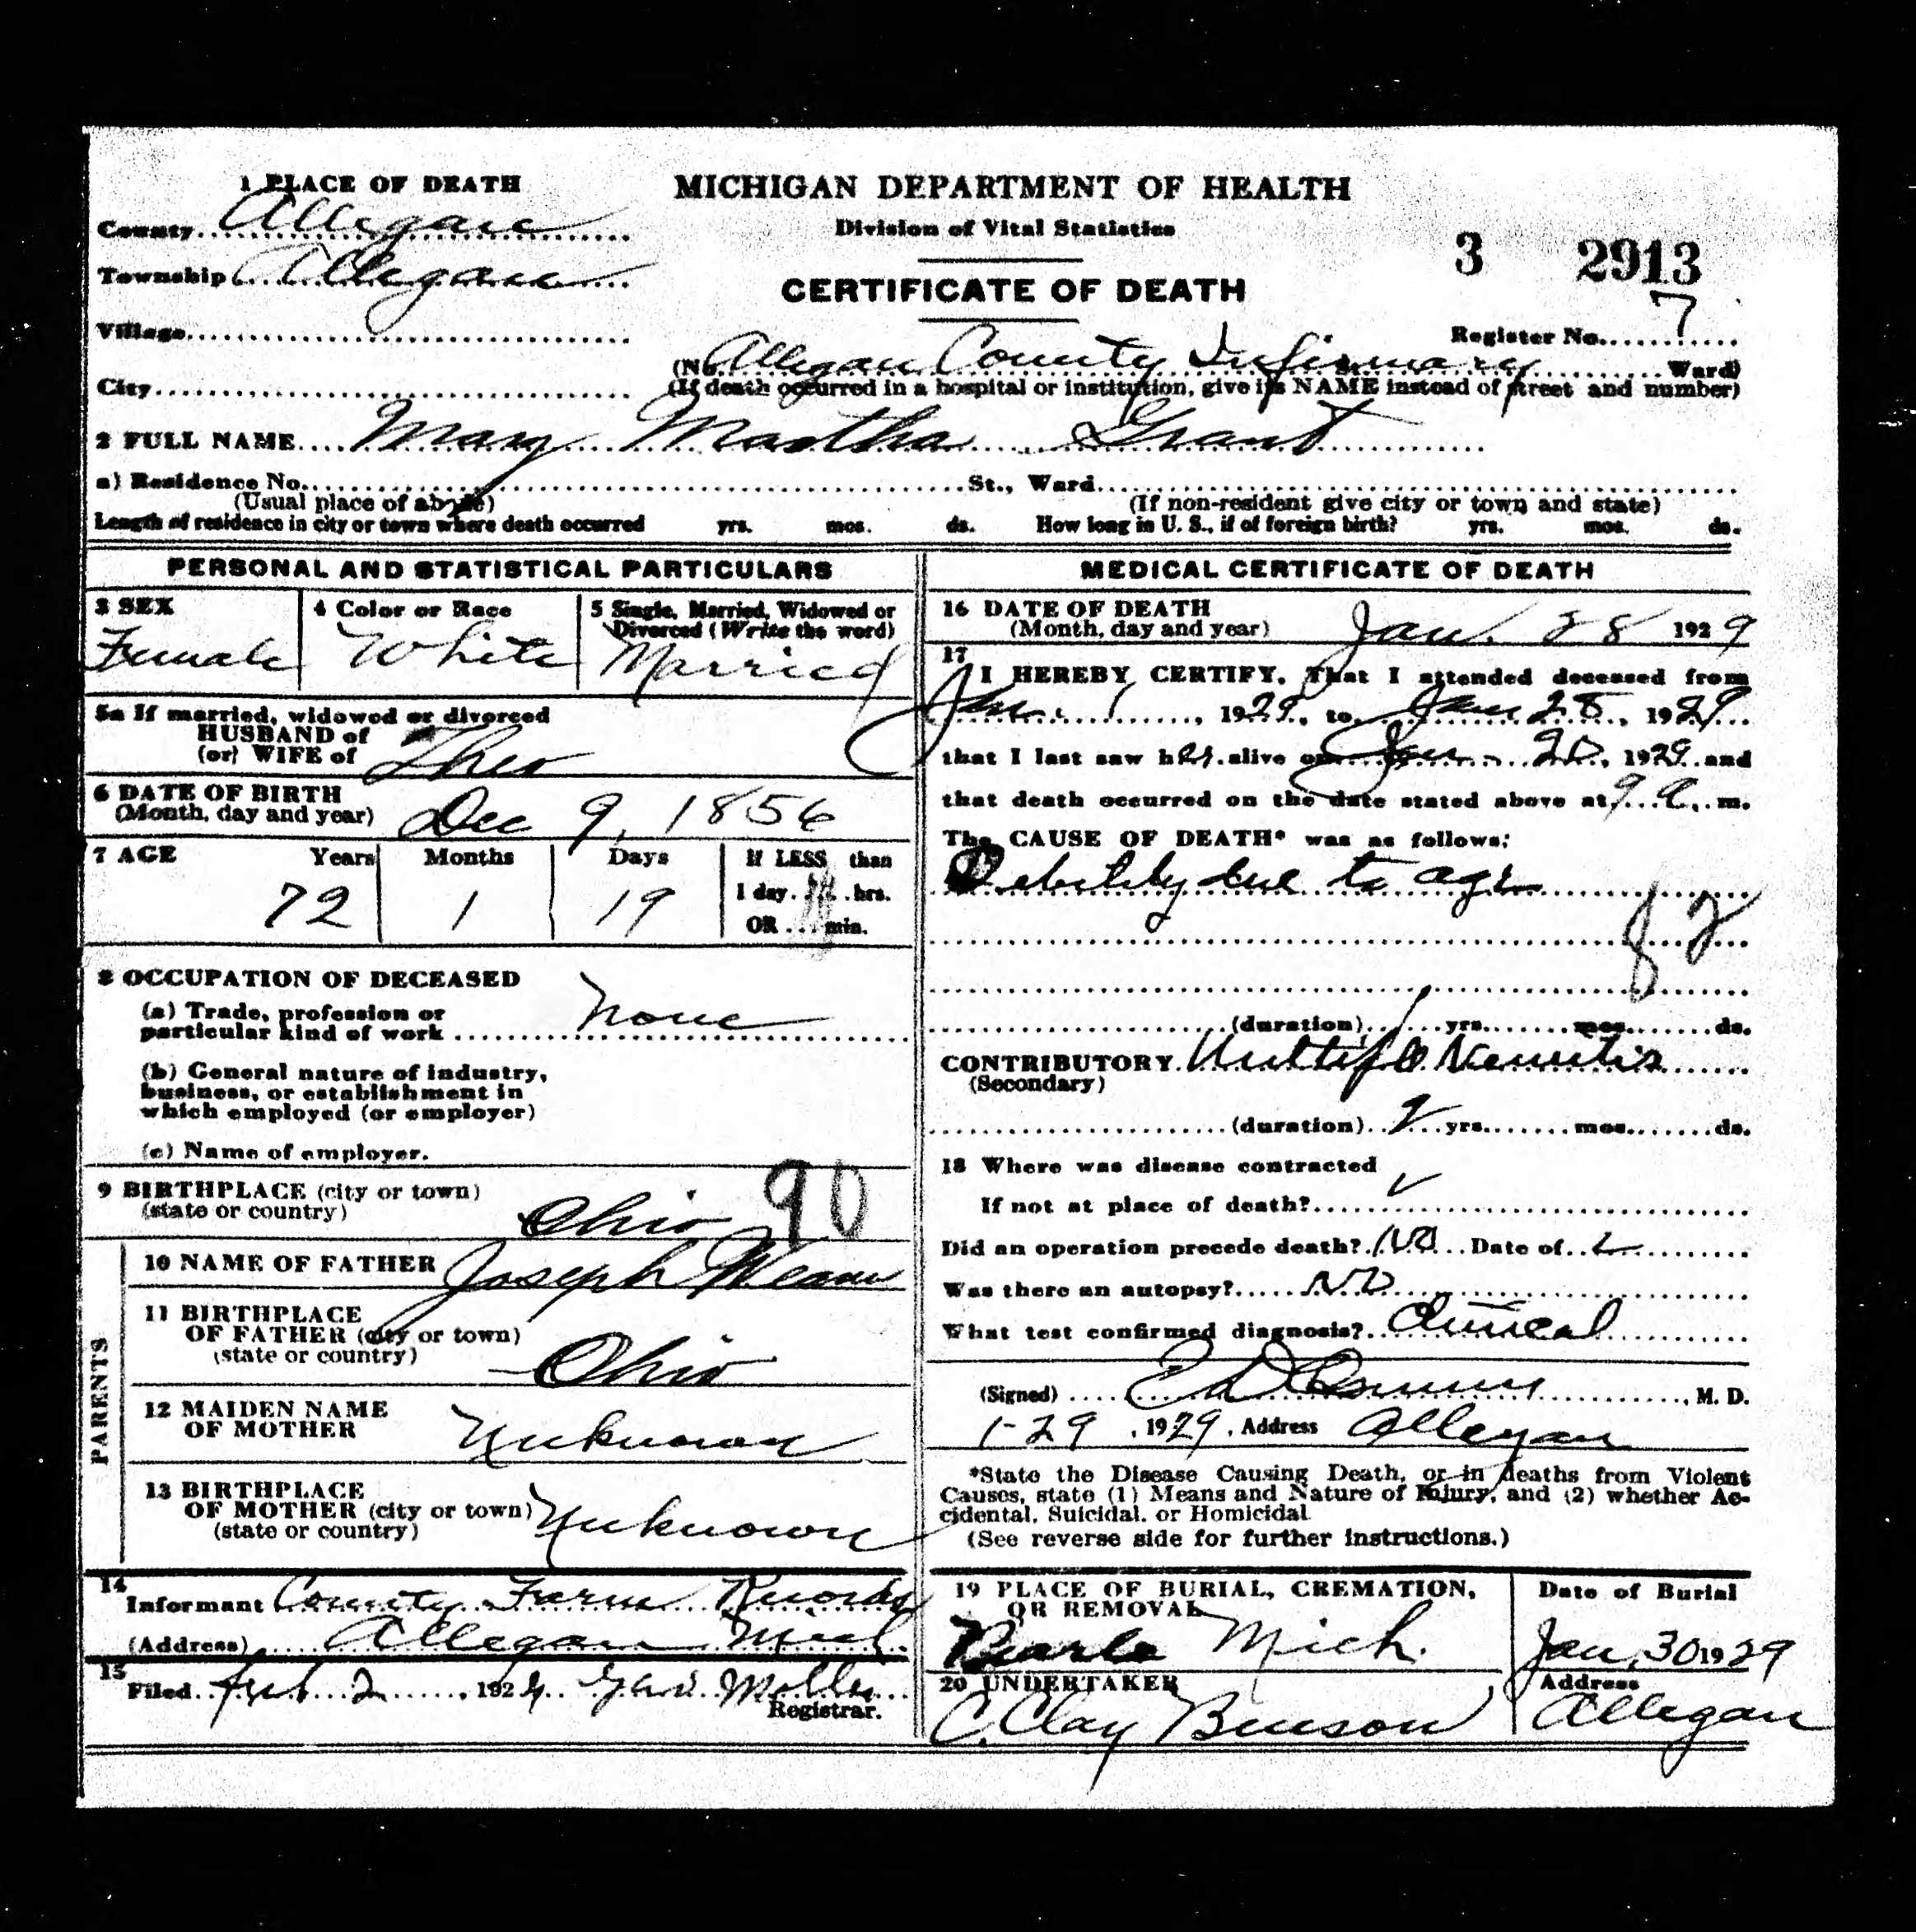 1 PLACE OF DEATH
County Allegan
Township Allegan
Village
City
MICHIGAN DEPARTMENT OF HEALTH
Division of Vital Statistics
CERTIFICATE OF DEATH
3 2913
Register No. 7
(No. Allegan County Infirmary Ward)
(If death occurred in a hospital or institution, give its NAME instead of street and number)
2 FULL NAME Mary Martha Grant
a) Residence No. St., Ward
(Usual place of abode) (If non-resident give city or town and state)
Length of residence in city or town where death occurred yrs. mos. ds. How long in U. S., if of foreign birth? yrs. mos. ds.
PERSONAL AND STATISTICAL PARTICULARS
3 SEX
Female
4 Color or Race
White
5 Single, Married, Widowed or
Divorced (Write the word)
Married
5a If married, widowed or divorced
HUSBAND of
(or) WIFE of Theo
6 DATE OF BIRTH
(Month, day and year) Dec 9, 1856
7 AGE Years Months Days If LESS than
1 day hrs.
OR min.
72 1 19
8 OCCUPATION OF DECEASED
(a) Trade, profession or
particular kind of work None
(b) General nature of industry,
business, or establishment in
which employed (or employer)
(c) Name of employer.
9 BIRTHPLACE (city or town)
(state or country) Ohio 90
PARENTS
10 NAME OF FATHER Joseph
11 BIRTHPLACE
OF FATHER (city or town)
(state or country) Ohio
12 MAIDEN NAME
OF MOTHER Unknown
13 BIRTHPLACE
OF MOTHER (city or town)
(state or country) Unknown
14
Informant County Farm Records
(Address) Allegan Mich
15
Filed 2, 192
Registrar.
MEDICAL CERTIFICATE OF DEATH
16 DATE OF DEATH
(Month, day and year) Jan. 28 1929
17
I HEREBY CERTIFY, That I attended deceased from
Jan. 1, 1929, to Jan 28, 1929
that I last saw her alive on Jan , 1929 and
that death occurred on the date stated above at 9 a. m.
The CAUSE OF DEATH* was as follows:
Debility due to age
(duration) 1 yrs. mos. ds.
CONTRIBUTORY Multiple Neuritis
(Secondary)
(duration) yrs. mos. ds.
18 Where was disease contracted
If not at place of death?
Did an operation precede death? No Date of
Was there an autopsy? No
What test confirmed diagnosis? Clinical
(Signed) , M. D.
1-29, 1929. Address Allegan
*State the Disease Causing Death, or in deaths from Violent
Causes, state (1) Means and Nature of Injury, and (2) whether Ac-
cidental, Suicidal, or Homicidal
(See reverse side for further instructions.)
19 PLACE OF BURIAL, CREMATION,
OR REMOVAL
Mich.
Date of Burial
Jan. 30 1929
20 UNDERTAKER
C. Clay Benson
Address
Allegan